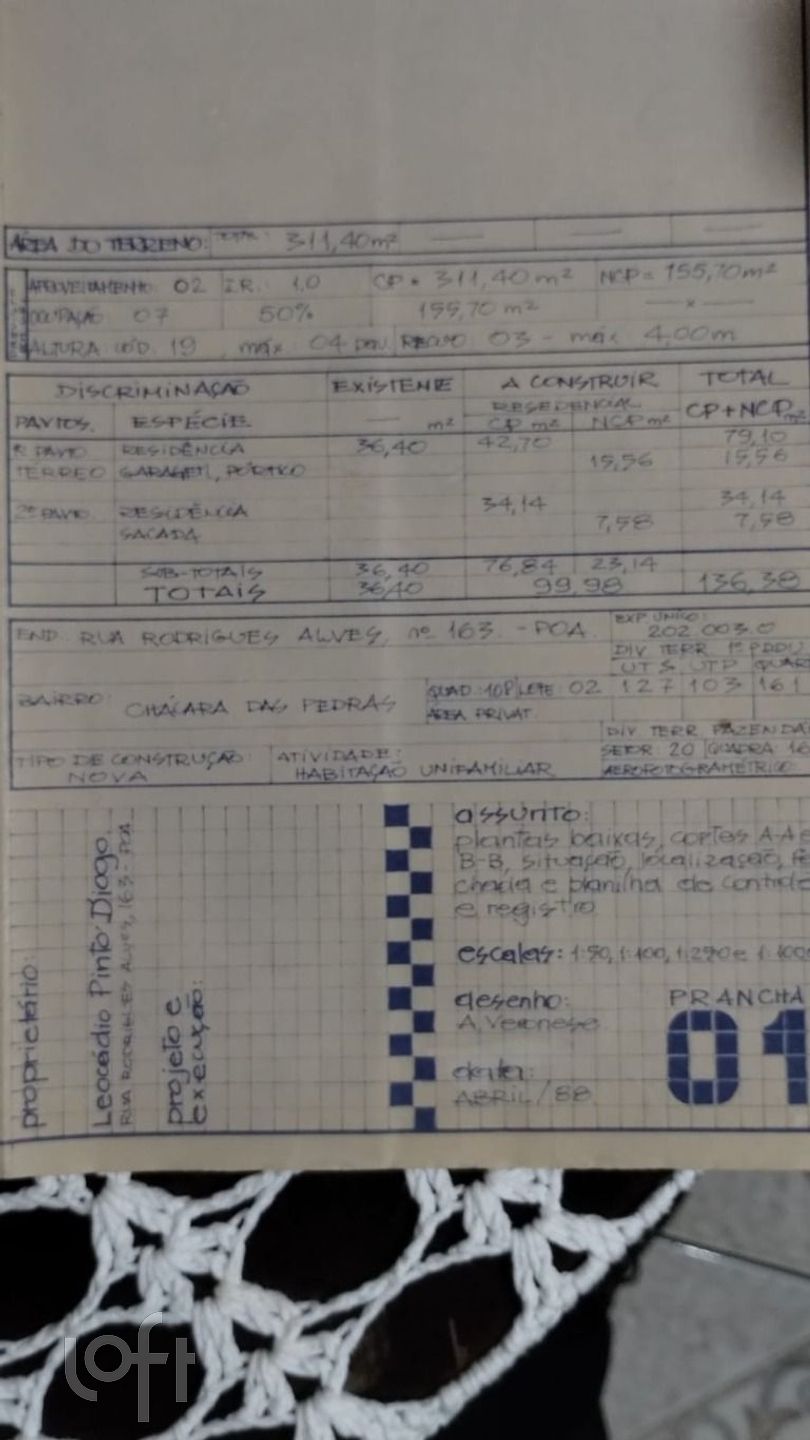 ÁREA DO TERRENO: TOTAL: 311,40 m²
APROVEITAMENTO: 02 I.R.: 1,0 CP = 311,40 m² NCP = 155,70 m²
OCUPAÇÃO 07 50% 155,70 m² — x —
ALTURA CÓD. 19 máx. 04 pav. RECUO 03 - máx 4,00m
DISCRIMINAÇÃO EXISTENTE A CONSTRUIR TOTAL
RESEDENCIAL
PAVTOS. ESPÉCIE m² CP m² NCP m² CP+NCP m²
1º PAVTO RESIDÊNCIA 36,40 42,70 79,10
TERREO GARAGEM, PÓRTICO 15,56 15,56
2º PAVTO RESIDÊNCIA 34,14 34,14
SACADA 7,58 7,58
SUB-TOTAIS 36,40 76,84 23,14
TOTAIS 36,40 99,98 136,38
END. RUA RODRIGUES ALVES, nº 163. - POA.
EXP ÚNICO:
202.003.0
DIV TERR 1º PDDU
UTS UTP QUART
BAIRRO: CHÁCARA DAS PEDRAS
QUAD: LOTE: 02 127 103 161
ÁREA PRIVAT.
DIV. TERR. FAZENDA
SETOR: 20 QUADRA: 16
AEROFOTOGRAMÉTRICO:
TIPO DE CONSTRUÇÃO:
NOVA
ATIVIDADE:
HABITAÇÃO UNIFAMILIAR
proprietário:
Leocádio Pinto Diogo
RUA RODRIGUES ALVES, 163 - POA
projeto e
execução:
assunto:
plantas baixas, cortes A-A e
B-B, situação, localização, fa
chada e planilha de controle
e registro
escalas: 1:50, 1:100, 1:250 e
desenho:
A. Veronese
data:
ABRIL/88
PRANCHA
01
loft